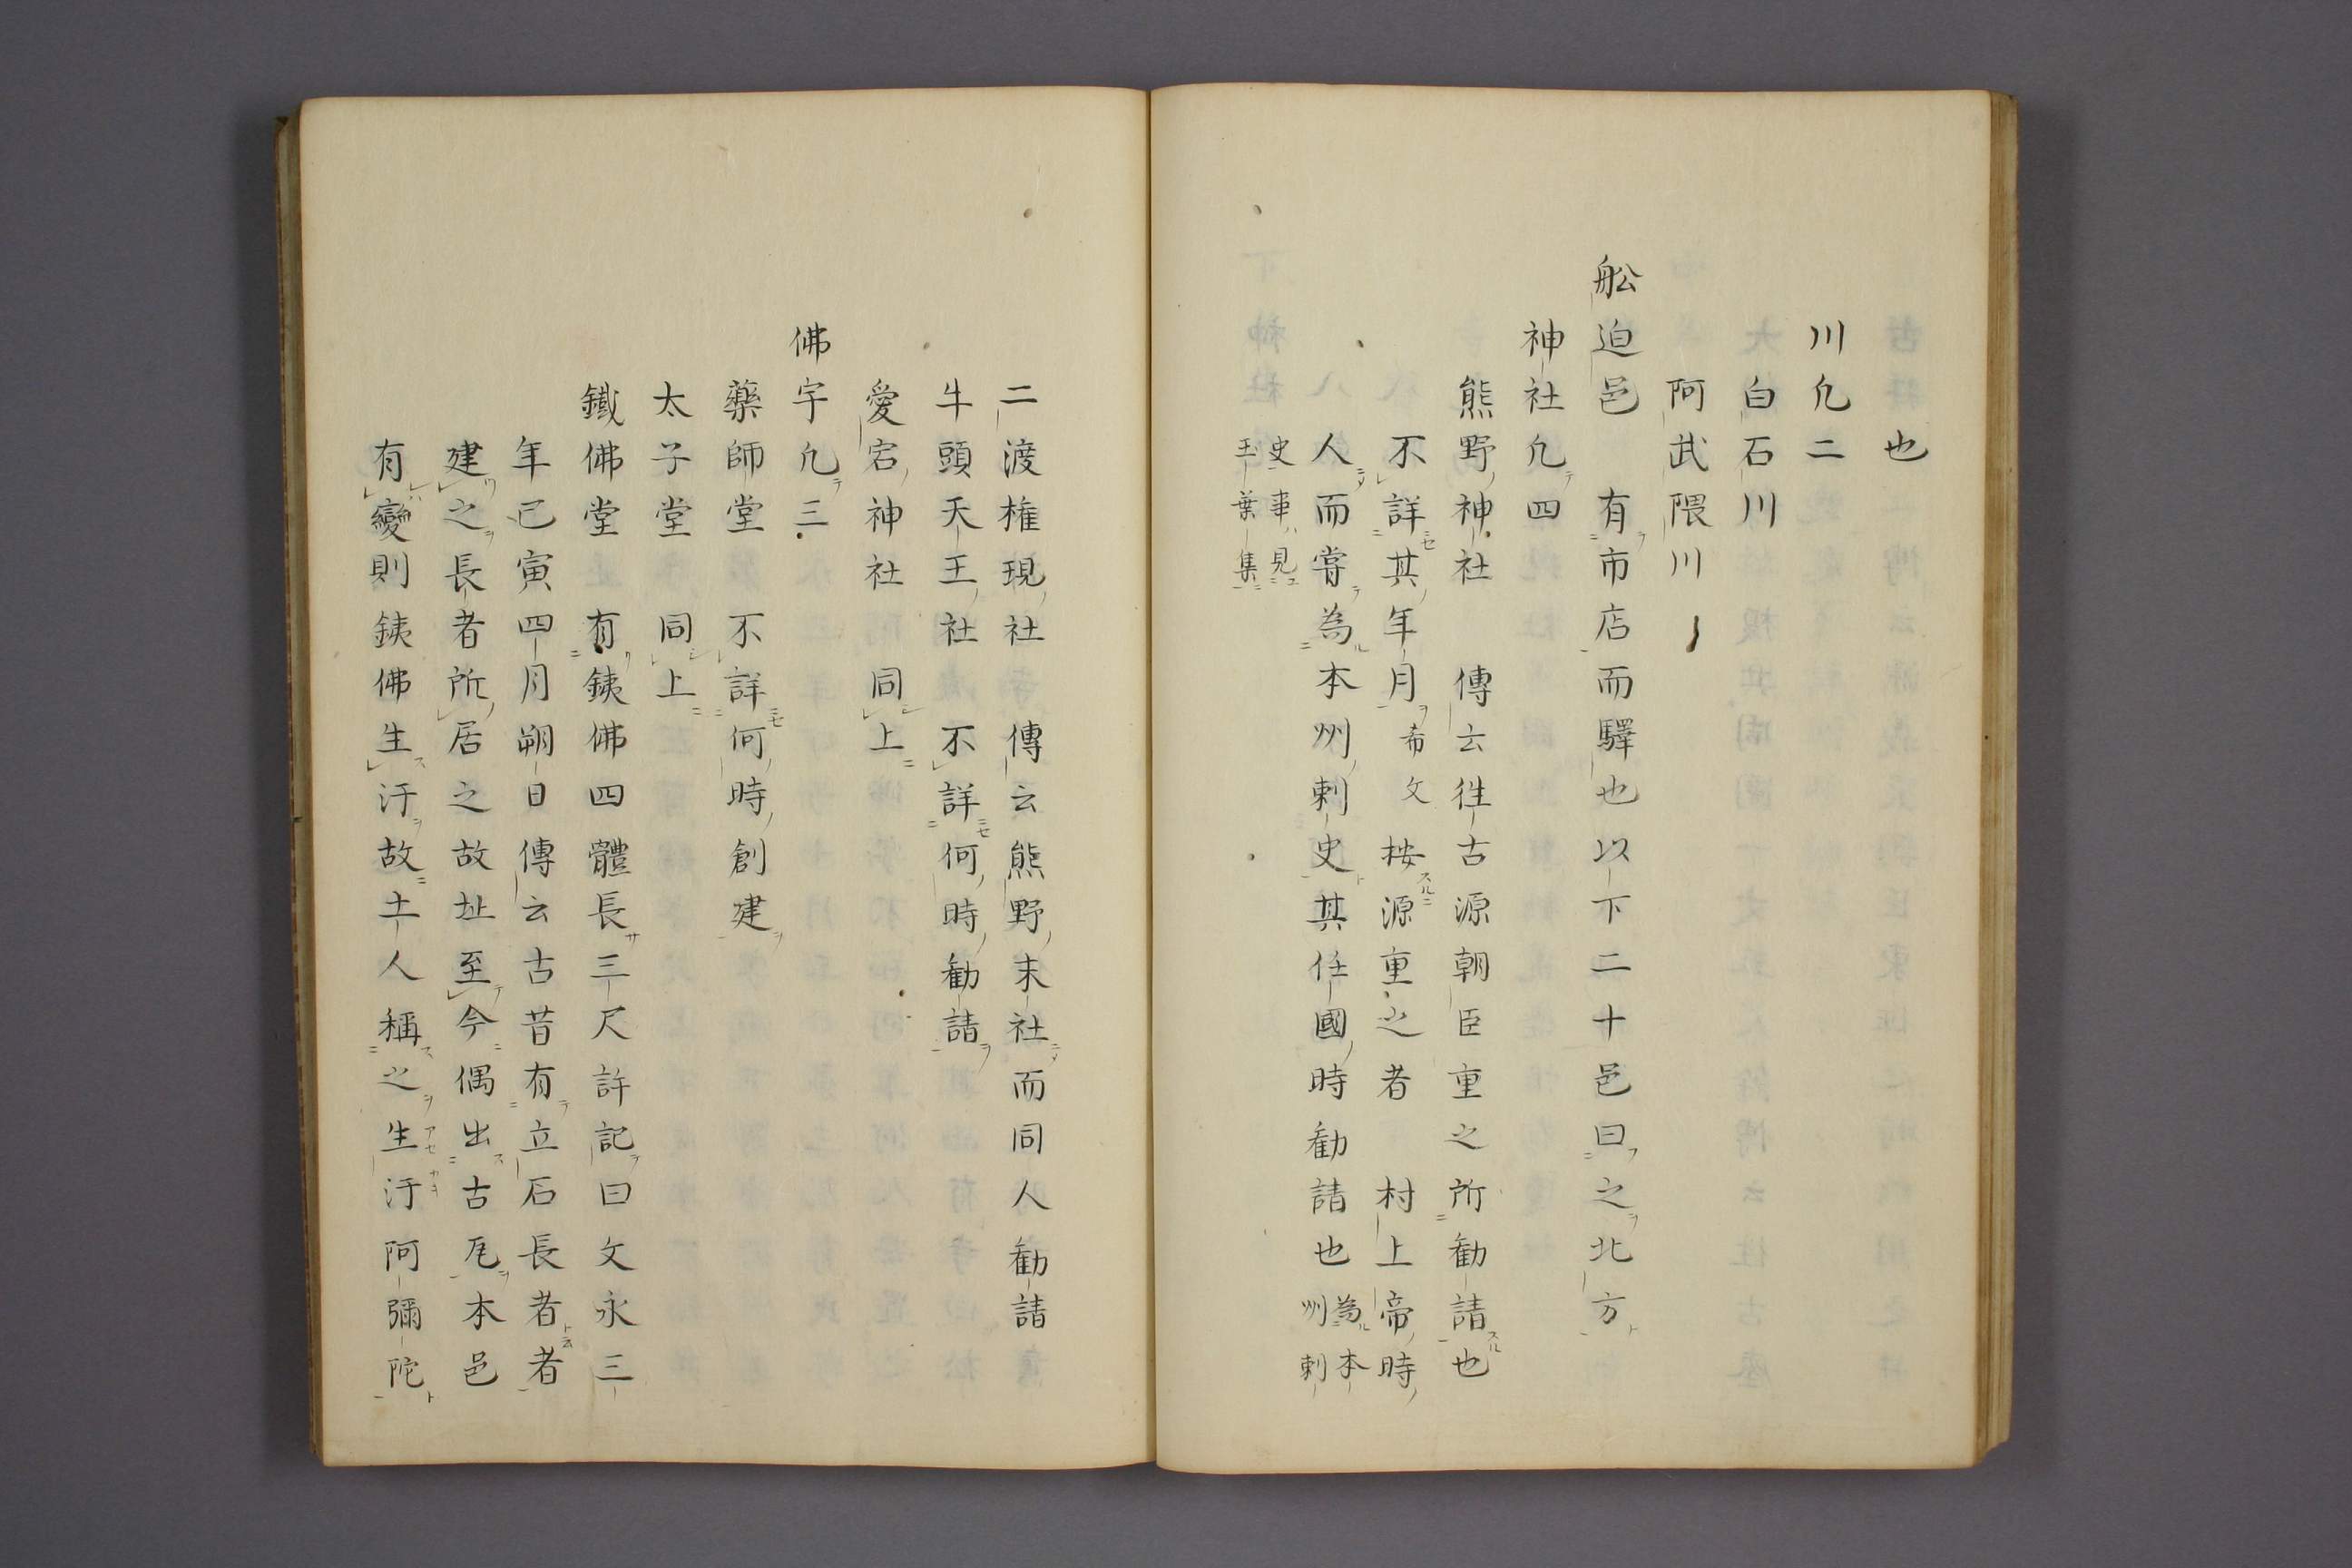 也
川凢二
白石川
阿武隈川
舩迫邑　有市店而驛也以下二十邑曰之北方
神社凢四
熊野神社　傳云徃古源朝臣重之所勸請也
不詳其年月希文　按源重之者　村上帝時
人而甞為本州刺史其任國時勸請也為本州刺
史事見玉葉集
二渡権現社　傳云熊野末社而同人勸請
牛頭天王社　不詳何時勸請
愛宕神社　同上
佛宇凢三
藥師堂　不詳何時創建
太子堂　同上
鐵佛堂　有銕佛四體長三尺許記曰文永三
年已寅四月朔日傳云古昔有立石長者者
建之長者所居之故址至今偶出古瓦本邑
有變則銕佛生汗故土人稱之生汗阿彌陀